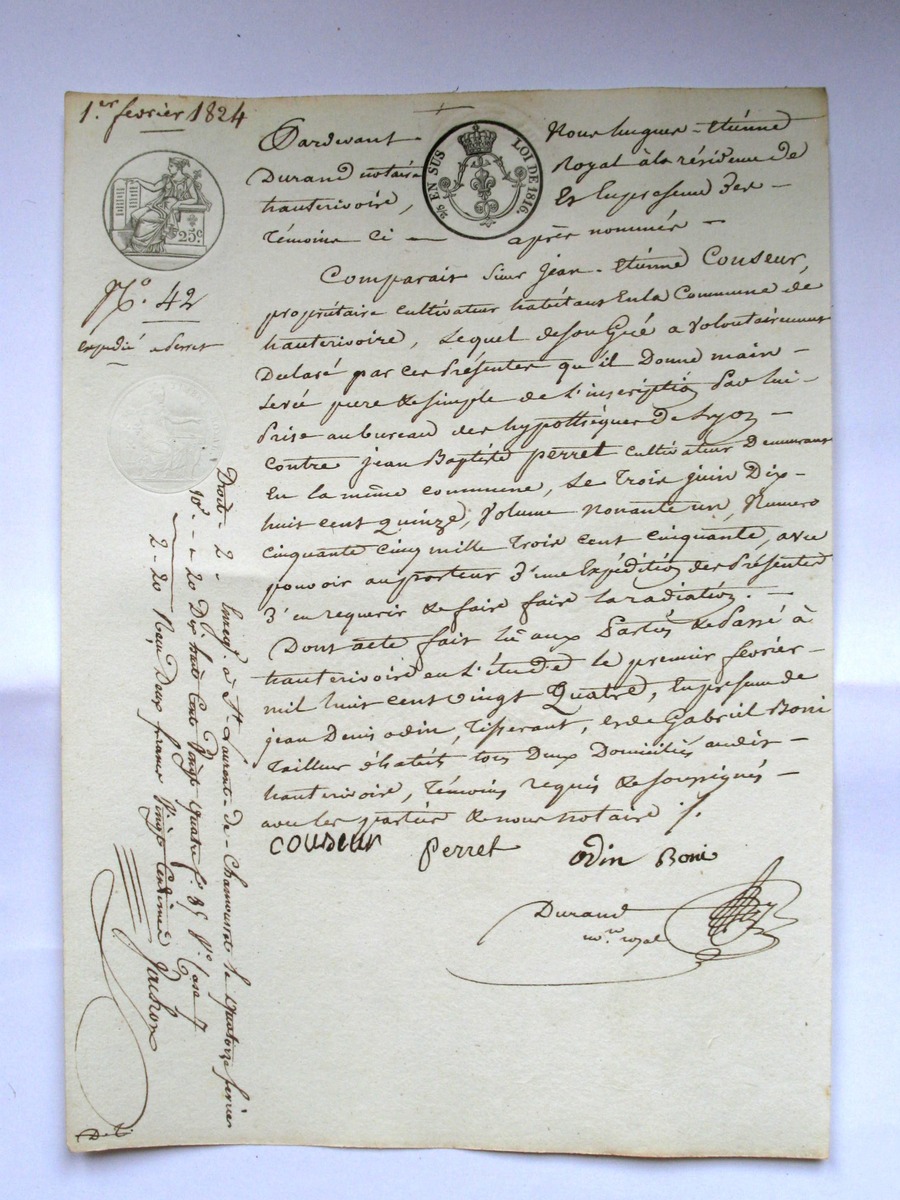 1.er fevrier 1824
25c.
N.o 42
expedié a Perret
EN SUS LOI DE 1816.
Pardevant Nous hugues-etiénne
Durand notaire Royal à la résidence de
hauterivoire, Et En presence des
témoins ci — après nommés —
Comparait Sieur Jean-etiénne Couseur,
propriétaire cultivateur habitant En la Commune de
hauterivoire, Lequel de son Gré a volontairement
Declaré par ces Présentes qu'il Donne main-
Levée pure & simple de L'inscription Par lui-
Prise au bureau des hypothèques De Lyon —
Contre jean Baptiste perret cultivateur Demeurant
En la même commune, Le Trois juin Dix-
huit cent quinze, Volume nonante un, Numero
Cinquante cinq mille trois cent cinquante, avec
pouvoir au porteur d'une Expédition des Présentes
d'en requerir & faire faire la radiation. —
Dont acte fait lû aux Parties & Passé à
hauterivoire en L'étude le premier fevrier —
mil huit cent vingt Quatre, En presence de
jean Denis odin, Tisserant, et de Gabriel Boni
Tailleur d'habits tous Deux Domiciliés audit —
hauterivoire, Témoins requis & soussignés —
avec les parties & nous notaire ./.
couseur perret odin Boni
Durand
no.re royal
Droits - 2 - Enregé à St Laurent-de-Chamousset le quatorze fevrier
10e - " 20 Dix huit Cent Vingt quatre f.o 35 V.o Case 7
2 - 20 Reçu Deux francs Vingt Centimes